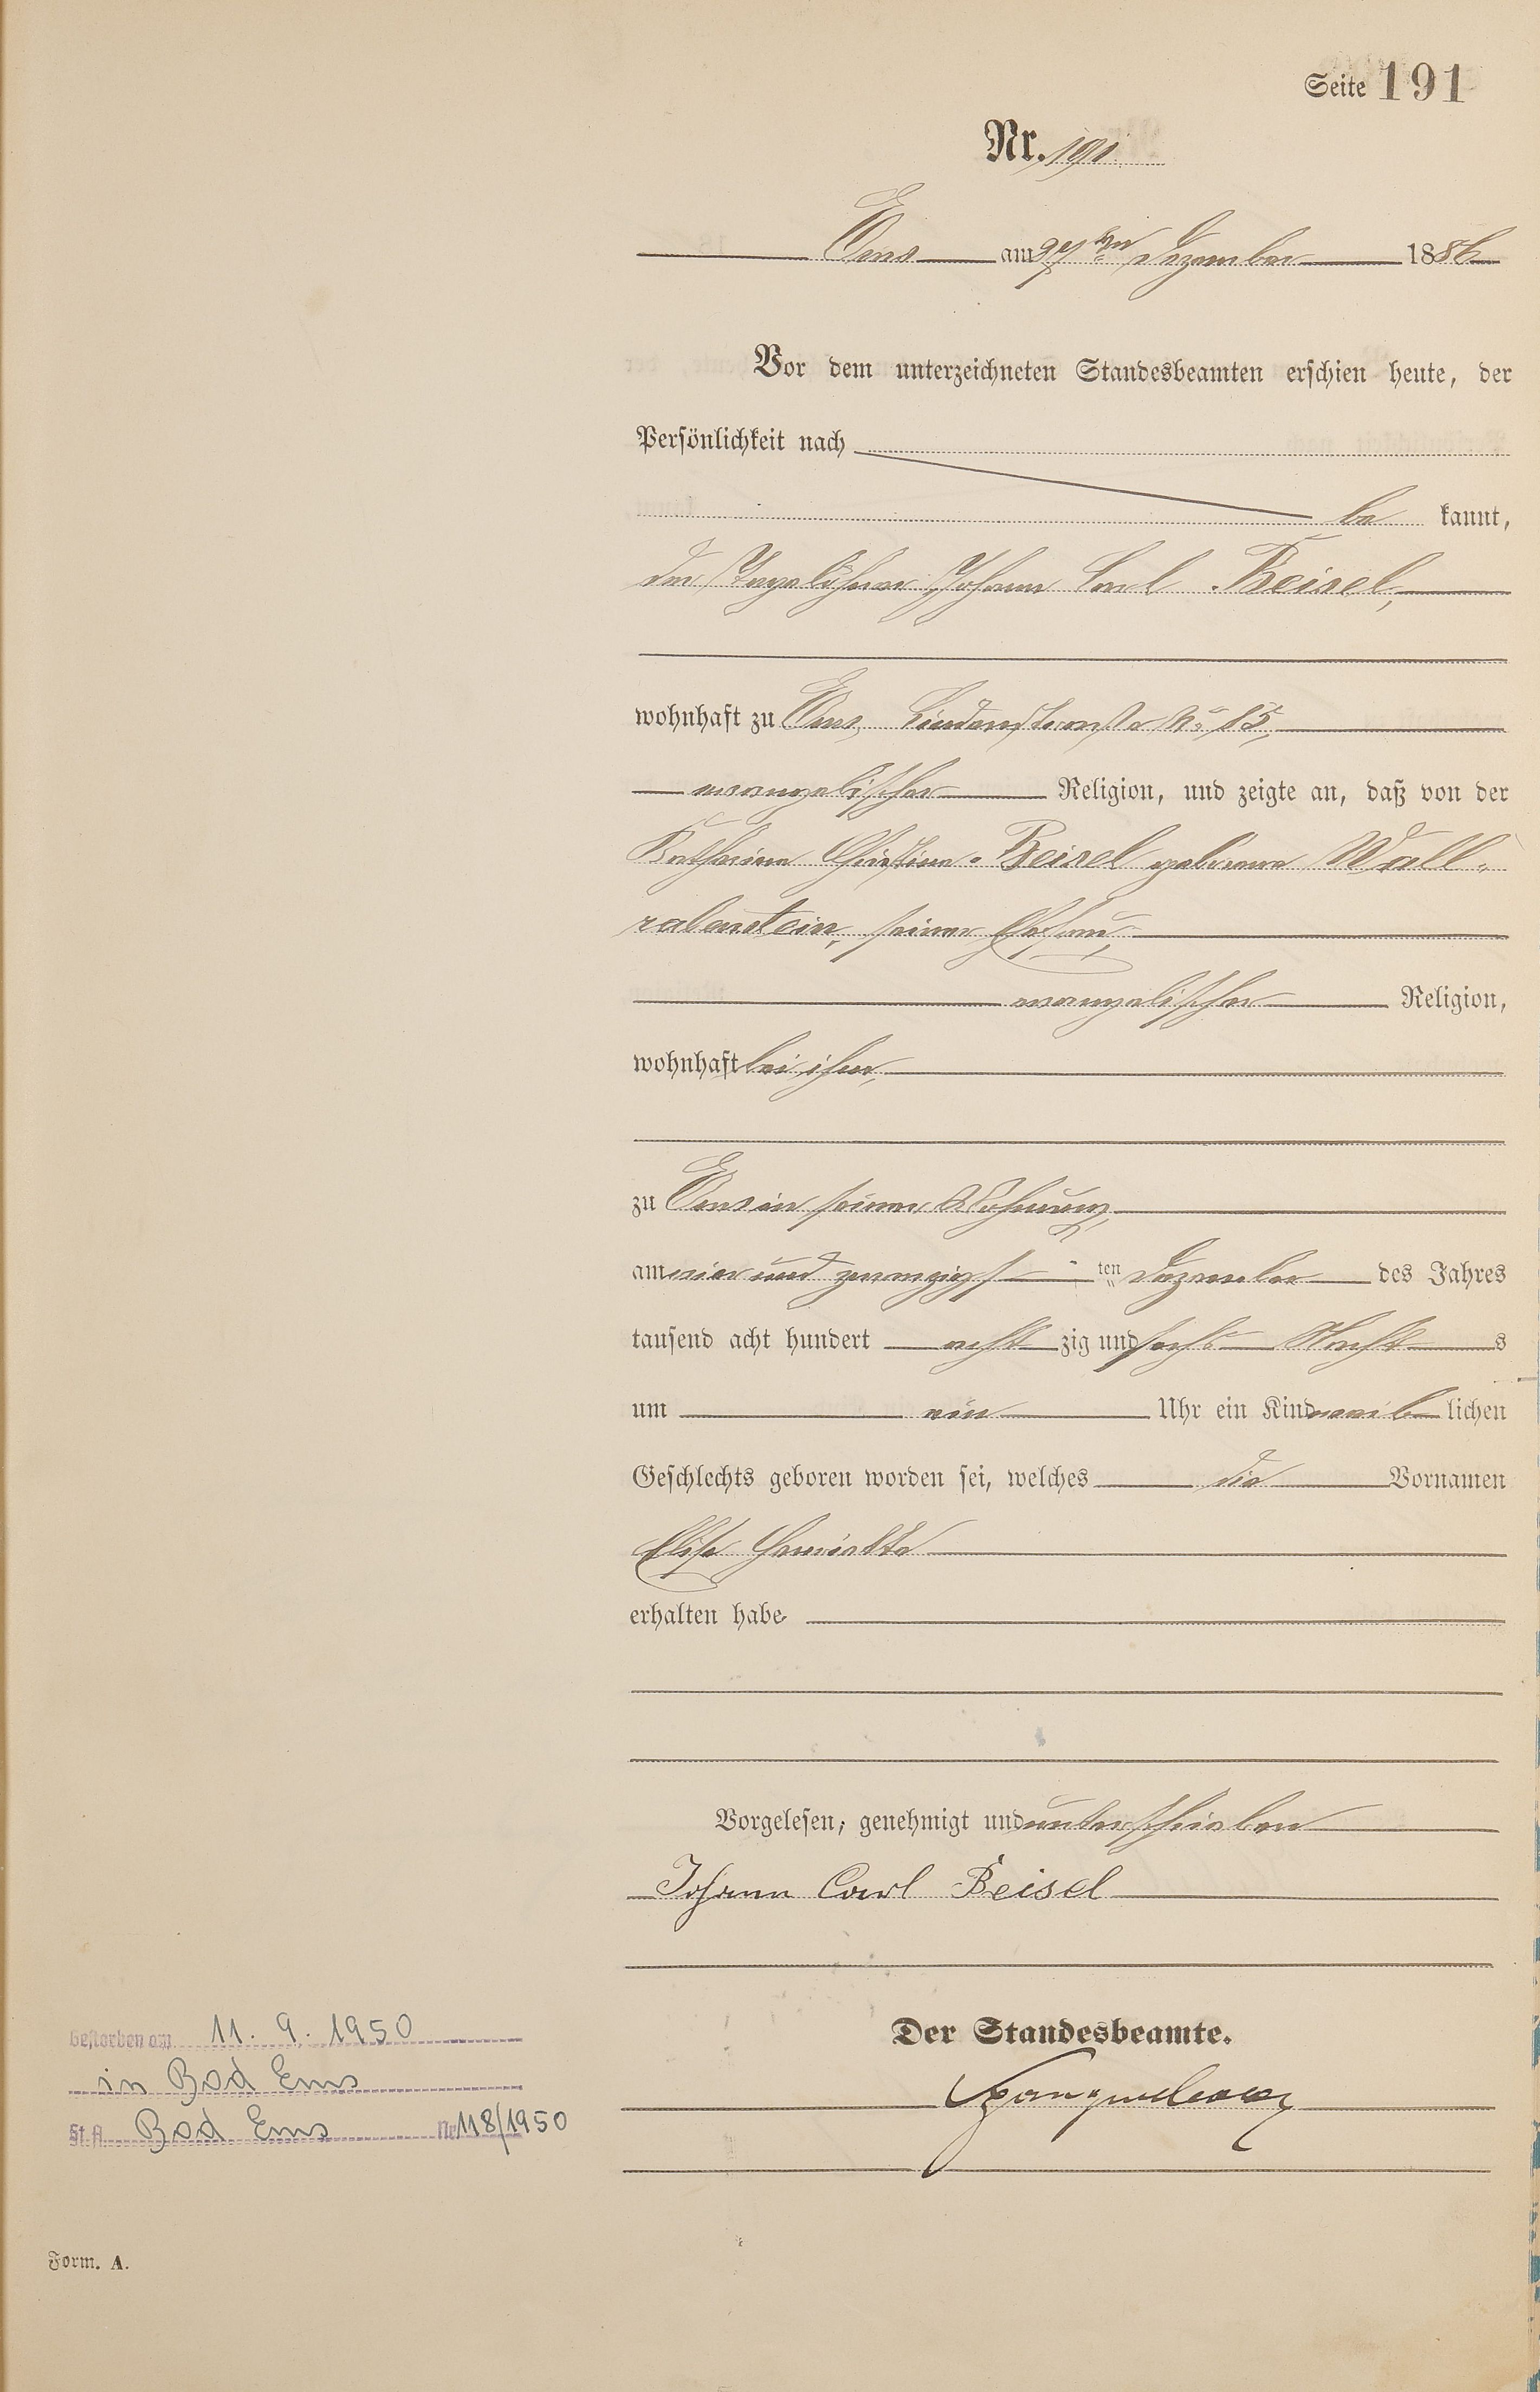 Seite 191
Nr. 191
Ems am 27ten Dezember 1886
Vor dem unterzeichneten Standesbeamten erschien heute, der
Persönlichkeit nach
be kannt,
der Tagelöhner Johann Carl Beisel,
wohnhaft zu Ems, Lindenstraße No 15,
evangelischer Religion, und zeigte an, daß von der
Katharina Christine Beisel geborene Wall-
rabenstein, seiner Ehefrau,
evangelischer Religion,
wohnhaft bei ihm,
zu Ems in seiner Wohnung,
am vier und zwanzigsten Dezember des Jahres
tausend acht hundert acht zig und sechs Nachts
um ein Uhr ein Kind weib lichen
Geschlechts geboren worden sei, welches die Vornamen
Elise Henriette
erhalten habe
Vorgelesen, genehmigt und unterschrieben
Johann Carl Beisel
Der Standesbeamte.
Gestorben am 11. 9. 1950
in Bad Ems
St. A. Bad Ems Nr 118/1950
Form. A.